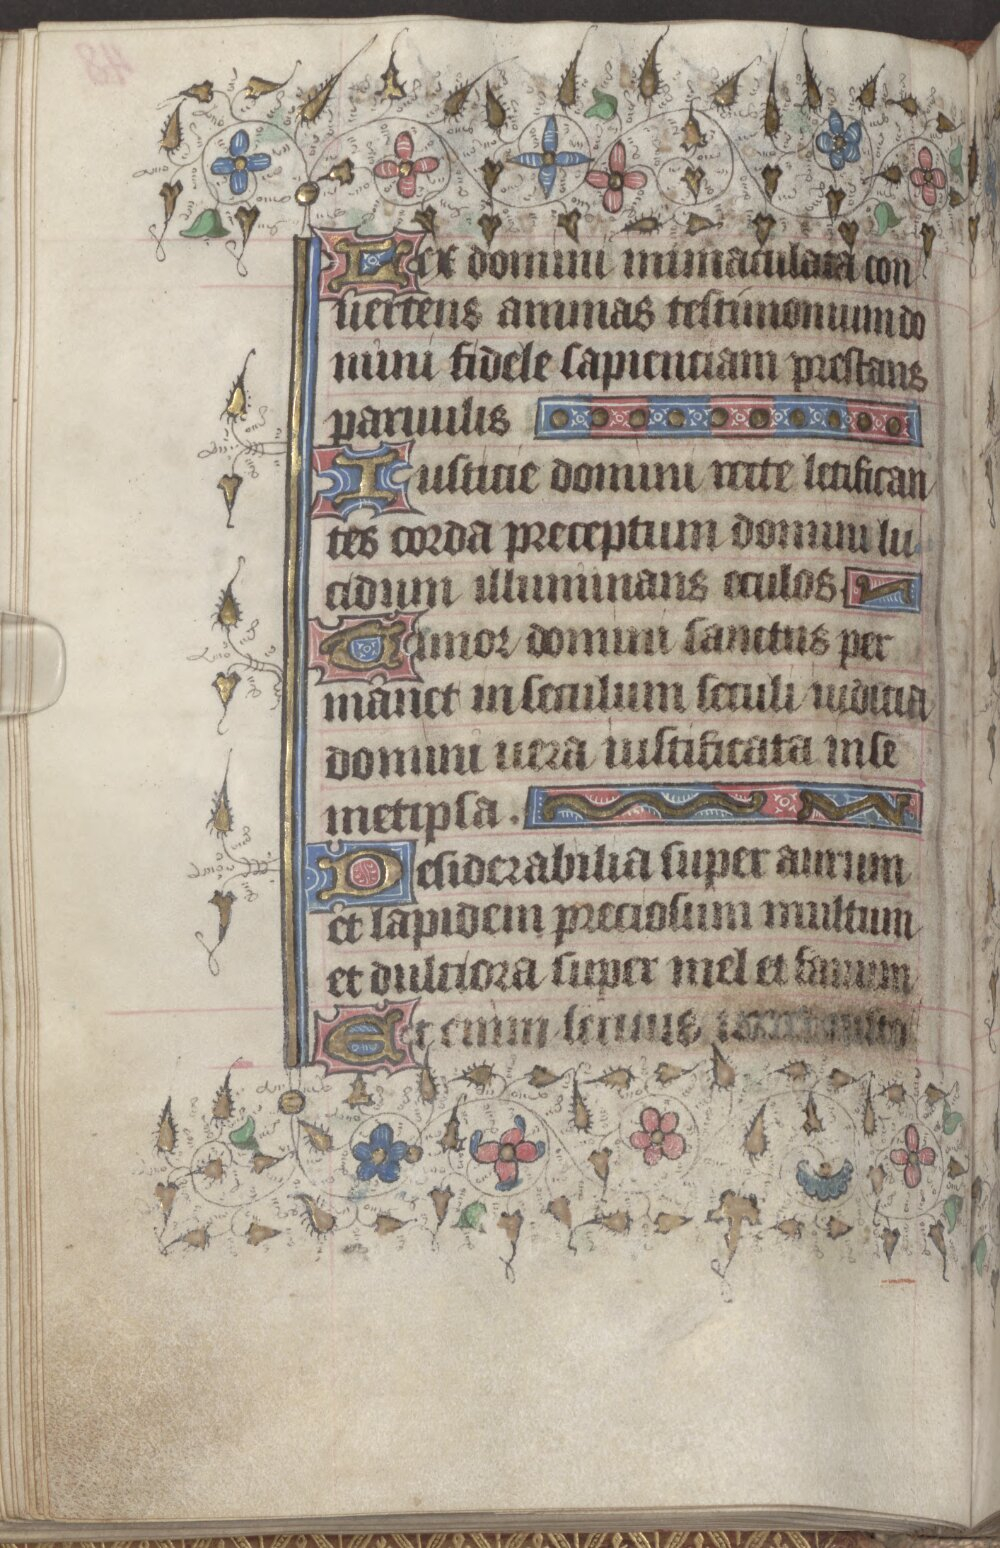 Lex domini inmaculata con
uertens animas testimonium do
mini fidele sapienciam prestans
paruulis
Iusticie domini recte letifican
tes corda preceptum domini lu
cidum illuminans oculos
Timor domini sanctus per
manet in seculum seculi iudicia
domini uera iustificata in se
metipsa.
Desiderabilia super aurum
et lapidem preciosum multum
et dulciora super mel et fauum
Et enim seruus